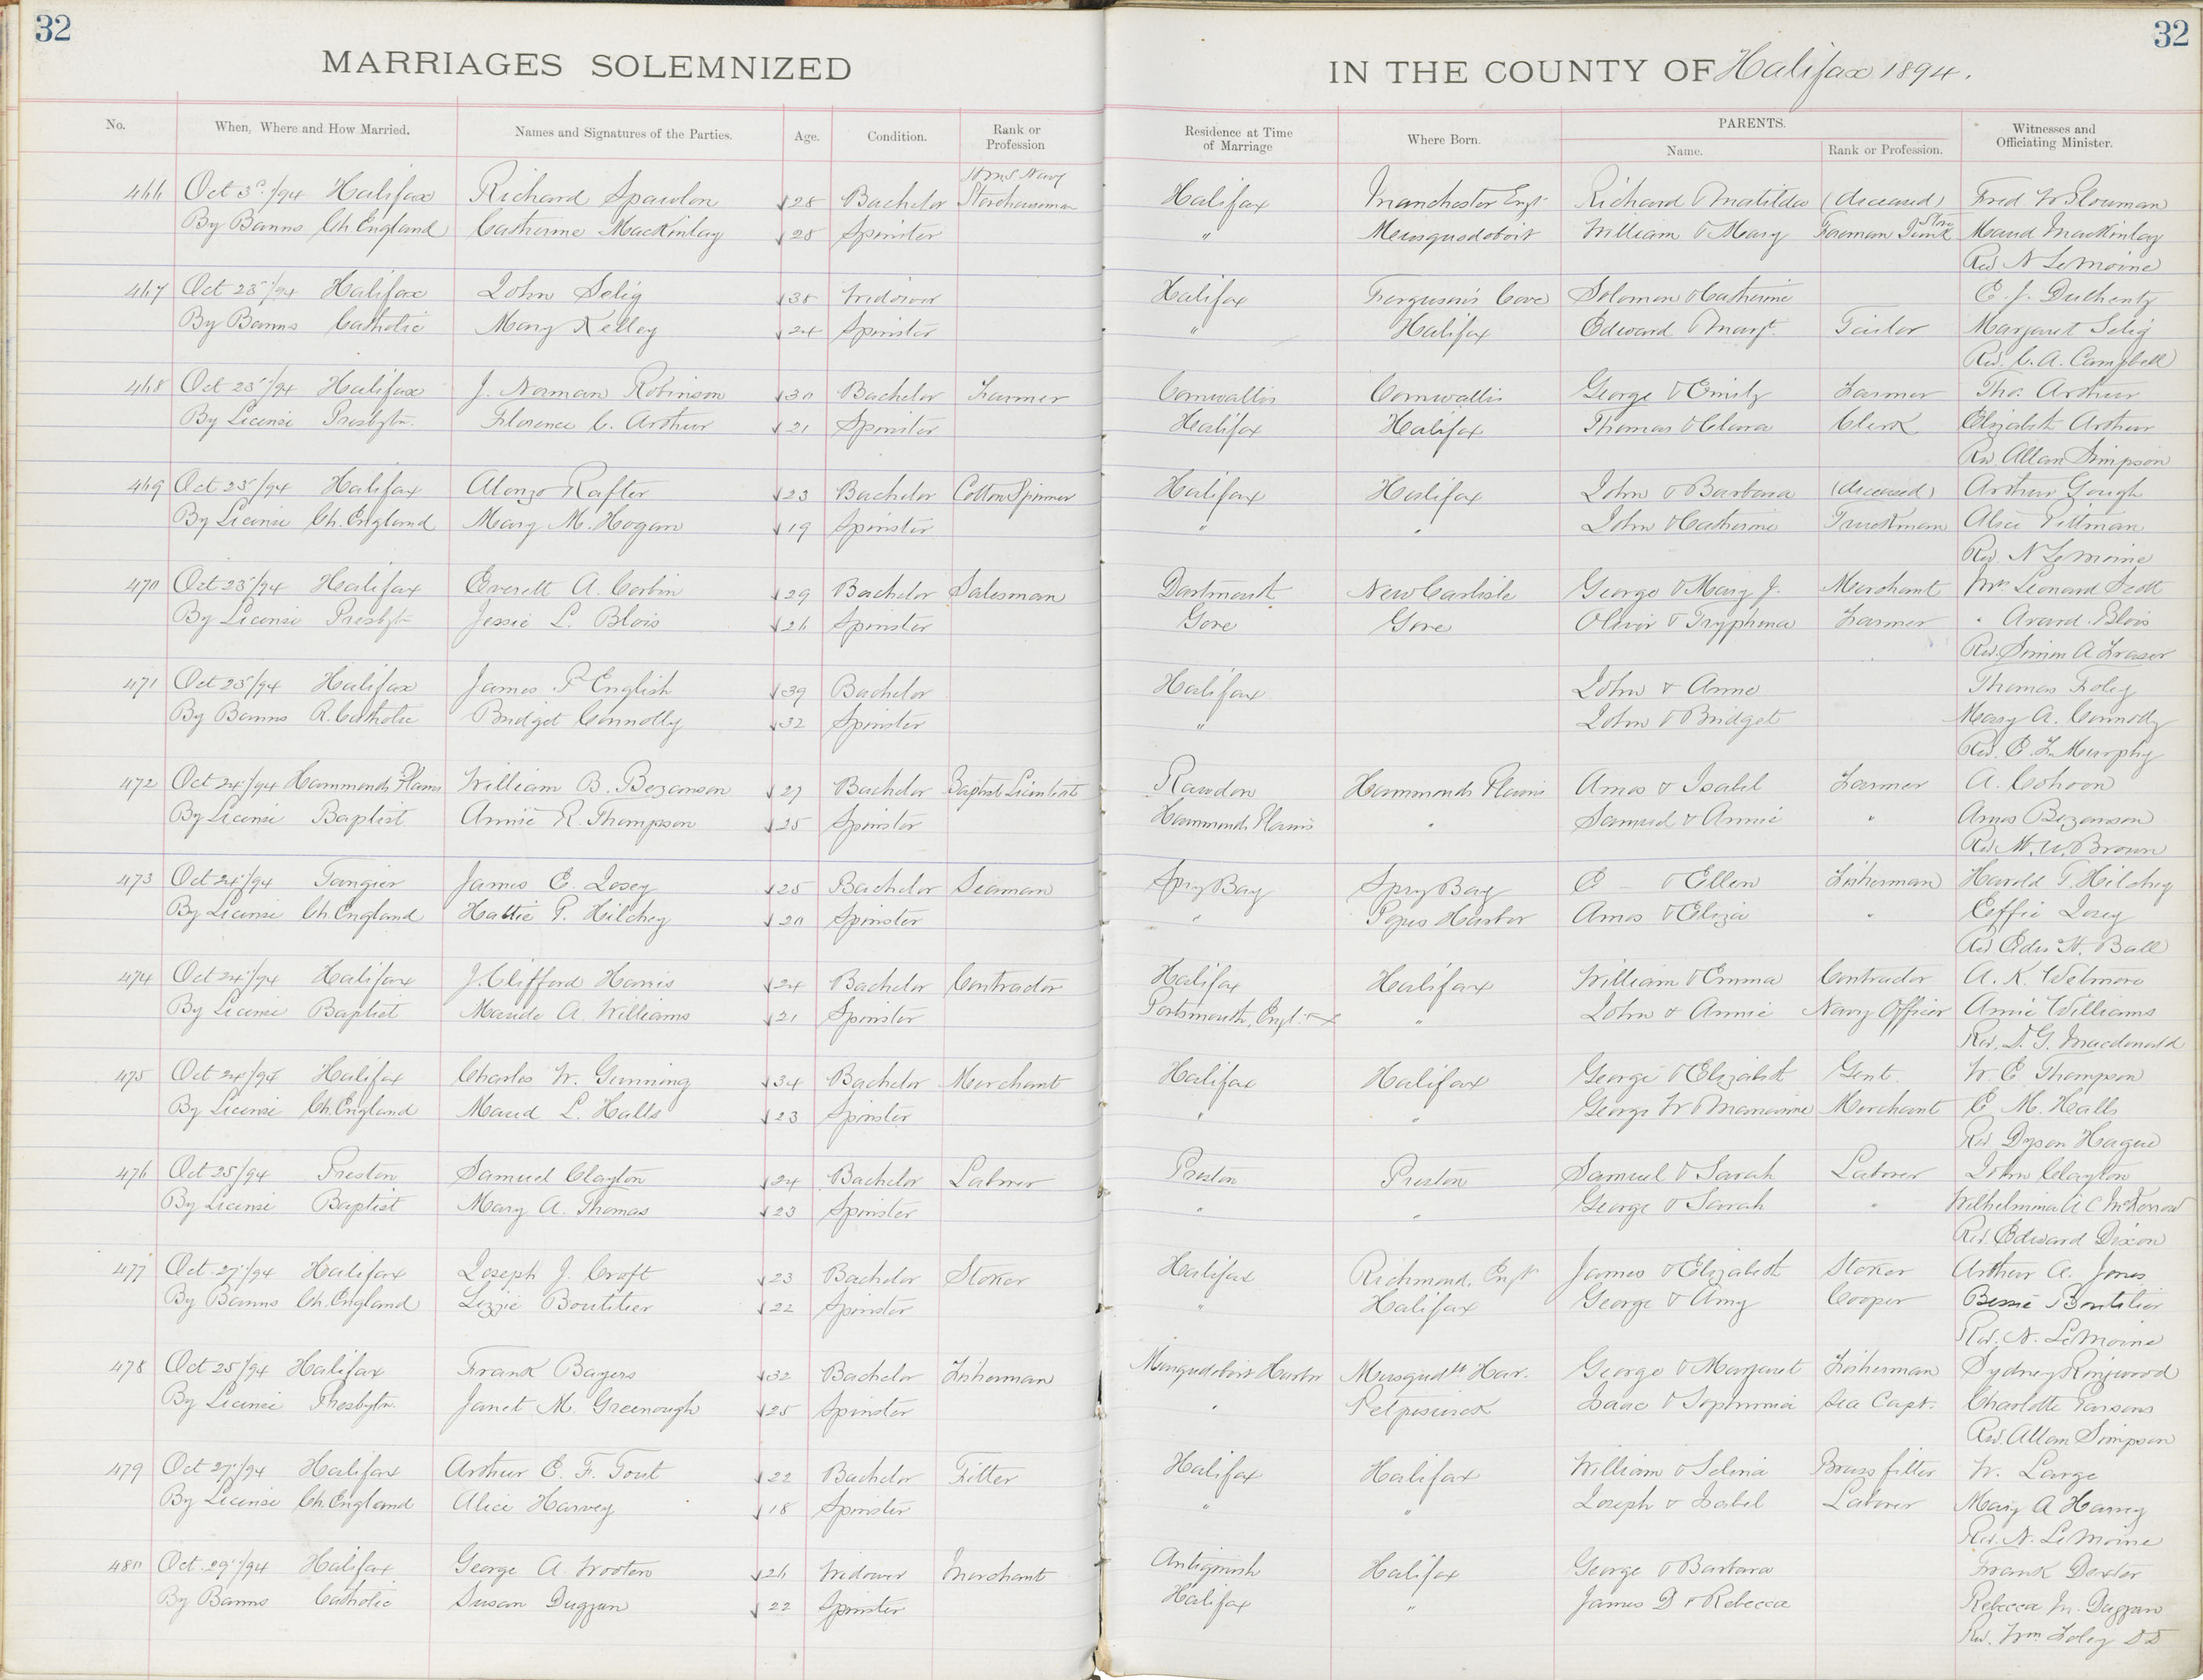 32
32
MARRIAGES SOLEMNIZED IN THE COUNTY OF Halifax 1894.
No. When, Where and How Married. Names and Signatures of the Parties. Age. Condition. Rank or Profession Residence at Time of Marriage Where Born. PARENTS. Name. Rank or Profession. Witnesses and Officiating Minister.
H.M.S Navy
466 Oct /94 Halifax Richard 28 Bachelor Storehouseman Halifax Manchester Engt Richard & Matilda (deceased) Fred W
By Banns Ch England Catherine MacKinlay 25 Spinster " Musquodoboit William & Mary Foreman Maud MacKinlay
Rev N LeMoine
467 Oct 23/94 Halifax John Selig 38 Widower Halifax Ferguson's Cove Solomon & Catherine E. J.
By Banns Catholic Mary Kelley 24 Spinster " Halifax Edward & Margt. Tailor Margaret Selig
Rev. C. A. Campbell
468 Oct 23/94 Halifax J. Norman Robinson 30 Bachelor Farmer Cornwallis Cornwallis George & Emily Farmer Tho. Arthur
By License Presbytn. Florence C. Arthur 21 Spinster Halifax Halifax Thomas & Clara Clerk Elizabeth Arthur
Rev. Allan Simpson
469 Oct 23/94 Halifax Alonzo Rafter 23 Bachelor Cotton Spinner Halifax Halifax John & Barbara (deceased) Arthur Gough
By License Ch. England Mary M. Hogan 19 Spinster " " John & Catherine Truckman Alice Pittman
Rev N LeMoine
470 Oct 23/94 Halifax Everett A. Corbin 29 Bachelor Salesman Dartmouth New Carlisle George & Mary J. Merchant Mrs Leonard Scott
By License Presbytn Jessie L. Blois 26 Spinster Gore Gore Oliver & Tryphena Farmer " Avard Blois
Rev. Simon A Fraser
471 Oct 23/94 Halifax James P English 39 Bachelor Halifax John & Anne Thomas Foley
By Banns R. Catholic Bridget Connolly 32 Spinster " John & Bridget Mary A. Connolly
Rev. E. F. Murphy
472 Oct 24/94 Hammonds Plains William B. Bezanson 27 Bachelor Baptist Licentiate Rawdon Hammonds Plains Amos & Isabel Farmer A. Cohoon
By License Baptist Annie R. Thompson 25 Spinster Hammonds Plains " Samuel & Annie " Amos Bezanson
Rev. M. W. Brown
473 Oct 24/94 Tangier James E. Josey 25 Bachelor Seaman Spry Bay Spry Bay E — & Ellen Fisherman Harold T. Hilchey
By License Ch England Hattie P. Hilchey 20 Spinster " Popes Harbor Amos & Eliza " Effie Josey
Rev Edw H. Ball
474 Oct 24/94 Halifax J. Clifford Harris 24 Bachelor Contractor Halifax Halifax William & Emma Contractor A. K. Wetmore
By License Baptist Maude A. Williams 21 Spinster Portsmouth, Engl. " John & Annie Navy Officer Annie Williams
Rev. D. G. Macdonald
475 Oct 24/94 Halifax Charles W. Gunning 34 Bachelor Merchant Halifax Halifax George & Elizabeth Gent. W E Thompson
By License Ch. England Maud L. Halls 23 Spinster " " George W & Marianne Merchant E M. Halls
Rev Dyson Hague
476 Oct 25/94 Preston Samuel Clayton 24 Bachelor Laborer Preston Preston Samuel & Sarah Laborer John Clayton
By License Baptist Mary A. Thomas 23 Spinster " " George & Sarah " Wilhelmina A C
Rev. Edward Dixon
477 Oct 27/94 Halifax Joseph J. Croft 23 Bachelor Stoker Halifax Richmond, Engt James & Elizabeth Stoker Arthur A. Jones
By Banns Ch. England Lizzie Boutilier 22 Spinster " Halifax George & Amy Cooper Bessie Boutilier
Rev. N. LeMoine
478 Oct 25/94 Halifax Frank Bayers 32 Bachelor Fisherman Musquodoboit Harbor Musqudbt Har. George & Margaret Fisherman Sydney Ringwood
By License Presbytn. Janet M. Greenough 25 Spinster " Petpeswick Isaac & Sophronia Sea Capt. Charlotte Parsons
Rev. Allan Simpson
479 Oct 27/94 Halifax Arthur E. F. Tout 22 Bachelor Fitter Halifax Halifax William & Selina Brass fitter W. Large
By License Ch. England Alice Harvey 18 Spinster " " Joseph & Isabel Laborer Mary A Harvey
Rev. N. LeMoine
480 Oct 29/94 Halifax George A. Wooten 26 Widower Merchant Antigonish Halifax George & Barbara Frank Dexter
By Banns Catholic Susan Duggan 22 Spinster Halifax " James D & Rebecca Rebecca M. Duggan
Rev. Wm Foley DD